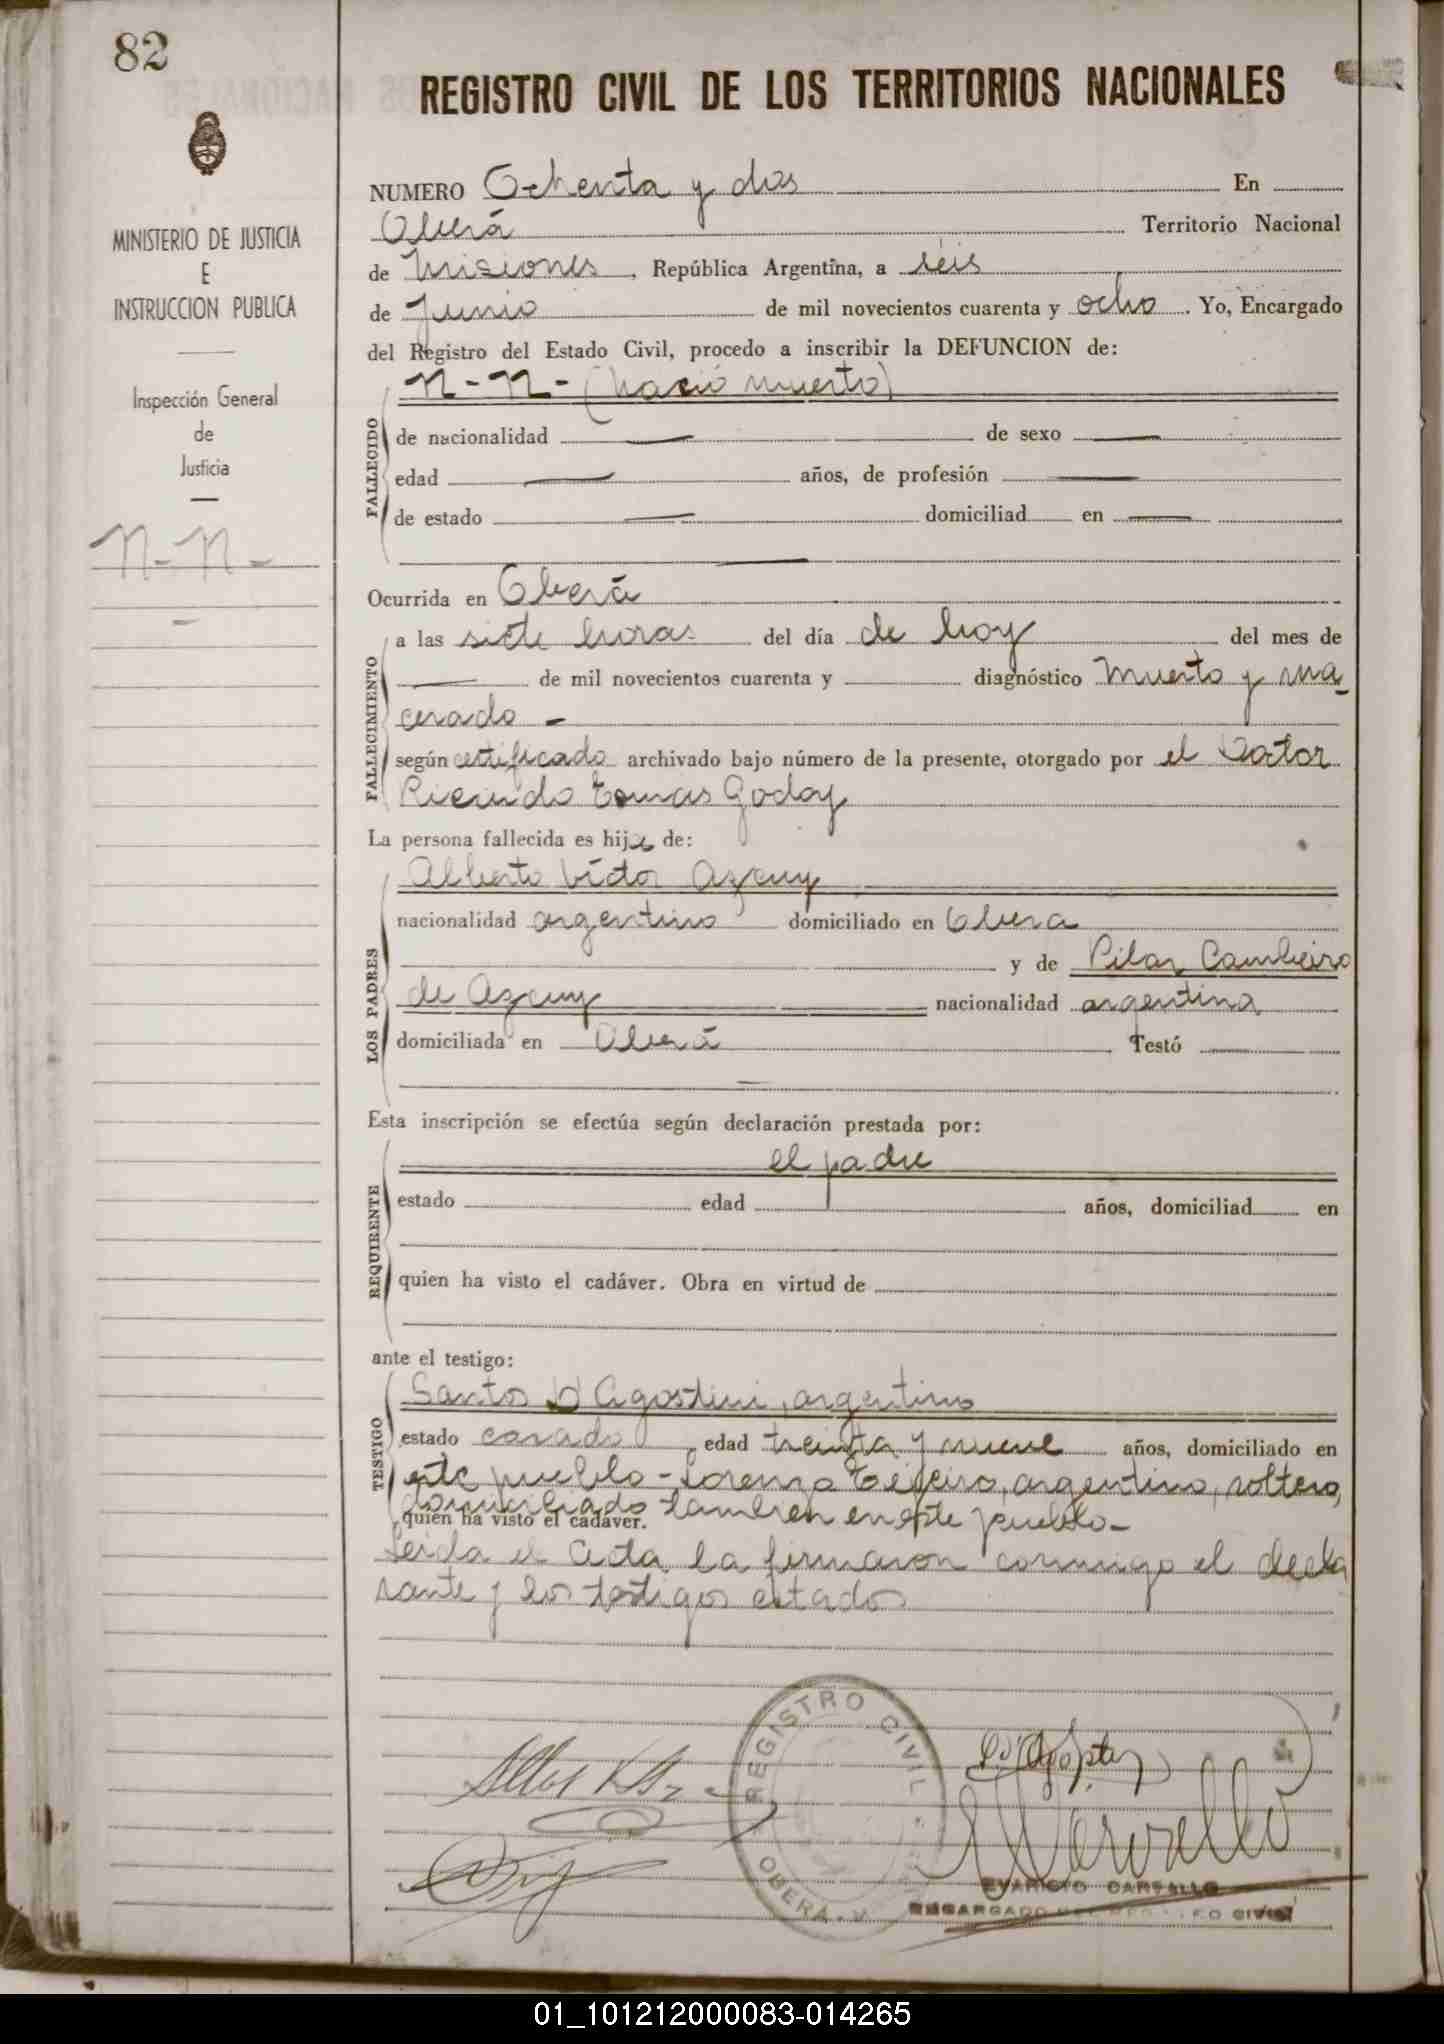 82
REGISTRO CIVIL DE LOS TERRITORIOS NACIONALES
MINISTERIO DE JUSTICIA
E
INSTRUCCION PUBLICA
Inspección General
de
Justicia
N-N-
NUMERO Ochenta y dos En
Oberá Territorio Nacional
de Misiones, República Argentina, a seis
de Junio de mil novecientos cuarenta y ocho. Yo, Encargado
del Registro del Estado Civil, procedo a inscribir la DEFUNCION de:
N-N- (nació muerto)
FALLECIDO
de nacionalidad — de sexo —
edad — años, de profesión —
de estado — domiciliad en —
Ocurrida en Oberá
FALLECIMIENTO
a las siete horas del día de hoy del mes de
— de mil novecientos cuarenta y diagnóstico Muerto y ma-
cerado -
según certificado archivado bajo número de la presente, otorgado por el Doctor
Ricardo Tomas Godoy
La persona fallecida es hijo de:
LOS PADRES
Alberto Víctor Azcuy
nacionalidad argentino domiciliado en Obera
y de Pilar Cambeiro
de Azcuy nacionalidad argentina
domiciliada en Oberá Testó
Esta inscripción se efectúa según declaración prestada por:
REQUIRENTE
el padre
estado edad años, domiciliad en
quien ha visto el cadáver. Obra en virtud de
ante el testigo:
TESTIGO
Santos D'Agostini, argentino
estado casado, edad treinta y nueve años, domiciliado en
este pueblo - Lorenzo Teijeiro, argentino, soltero,
domiciliado tambien en este pueblo-
quien ha visto el cadáver.
Leida el Acta la firmaron conmigo el decla
rante y los testigos citados
REGISTRO CIVIL
OBERA
EVARISTO CARVALLO
ENCARGADO DEL REGISTRO CIVIL
01_101212000083-014265